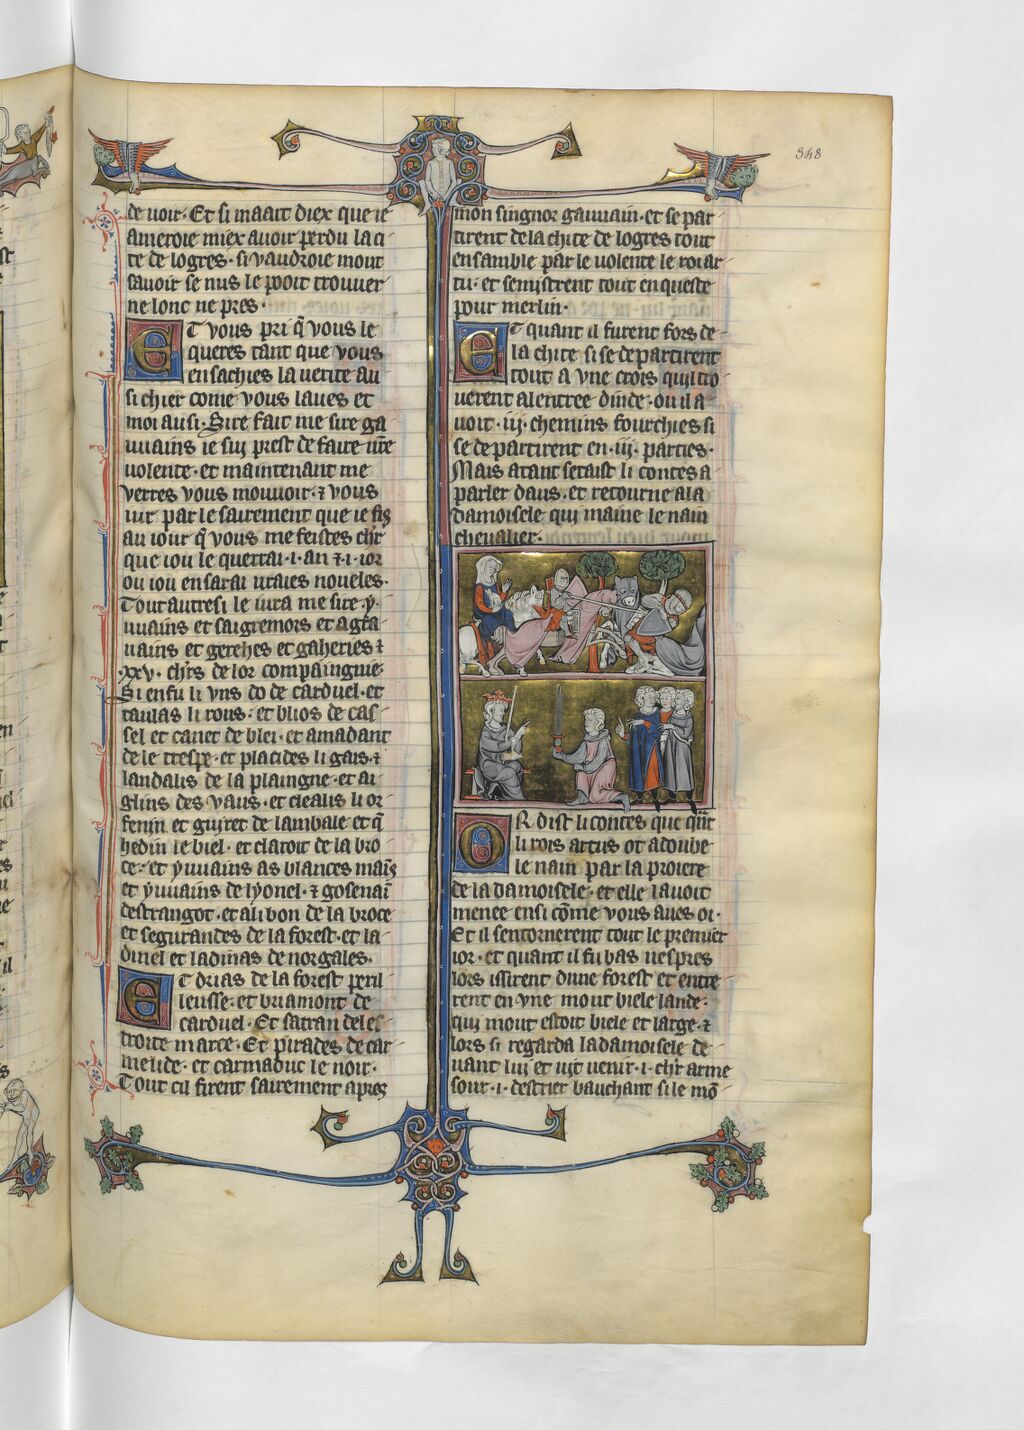 348
de uoir· Et si maait diex que ie
ameroie miex auoir perdu la ci
te de logres· si vaudroie mout
sauoir se nus le poit trouuer
ne lonc ne pres·
ET vous pri q̃ vous le
queres tant que vous
en sachies la uerite au
si chier come vous laues et
moi ausi· Sire fait me sire ga
uuains ie sui prest de faire ur̃e
uolente· et maintenant me
verres vous mouuoir· ⁊ vous
iur par le sairement que ie fis
au iour q̃ vous me feistes chr̃
que iou le querrai ·i· an ⁊ ·i· ior
ou iou en sarai uraies noueles·
Tout autresi le iura me sire ·y·
uuains et saigremors et agra
uains et gerehes et gaheries ⁊
·xxv· chr̃s de lor compaingnie
Si en fu li vns do de carduel· et
taulas li rous· et blios de cas
sel et canet de blei· et amadant
de le trespe· et placides li gais· ⁊
landalis de la plaingne· et ai
glins des vaus· et clealis li or
fenin et guiret de lambale et q̃
hedin le biel· et clarot de la bro
ce· et yuuains as blances mains
et yuuains de lyonel· ⁊ gosenai
destrangot· et alibon de la broce
et segurandes de la forest· et la
dinel et ladinas de norgales·
ET drias de la forest peril
leusse· et briamont de
carduel· Et satran de les
troite marce· Et pirades de car
melide· et carmaduc le noir·
Tout cil firent sairement apres
mon singnor gauuain· et se par
tirent de la chite de logres tout
ensamble par le uolente le roi ar
tu· et se mistrent tout en queste
pour merlin·
ET quant il furent fors de
la chite si se departirent
tout a vne crois quil tro
uerent a lentree dinde· ou il a
uoit ·iij· chemins fourchies si
se departirent en ·iij· parties·
Mais atant se taist li contes a
parler daus· et retourne a la
damoisele qui maine le nain
cheualier·
OR dist li contes que qñt
li rois artus ot adoube
le nain par la proiere
de la damoisele· et elle lauoit
menee ensi cõme vous aues oi·
Et il sen tornerent tout le premier
ior· et quant il fu bas uespres
lors issirent dune forest et entre
rent en vne mout biele lande·
qui mout estoit biele et large· ⁊
lors si regarda la damoisele de
uant lui et uit uenir ·i· chr̃ arme
sour ·i· destrier bauchant si le mõ